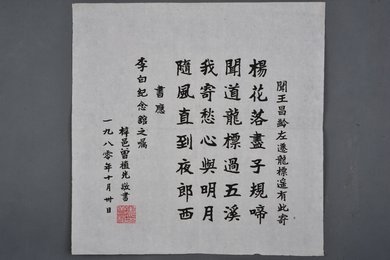 聞王昌齡左遷龍標遙有此寄
楊花落盡子規啼
聞道龍標過五溪
我寄愁心與明月
隨風直到夜郎西
書應
李白紀念館之囑
梓邑曾植先敬書
一九八〇年十月廿日